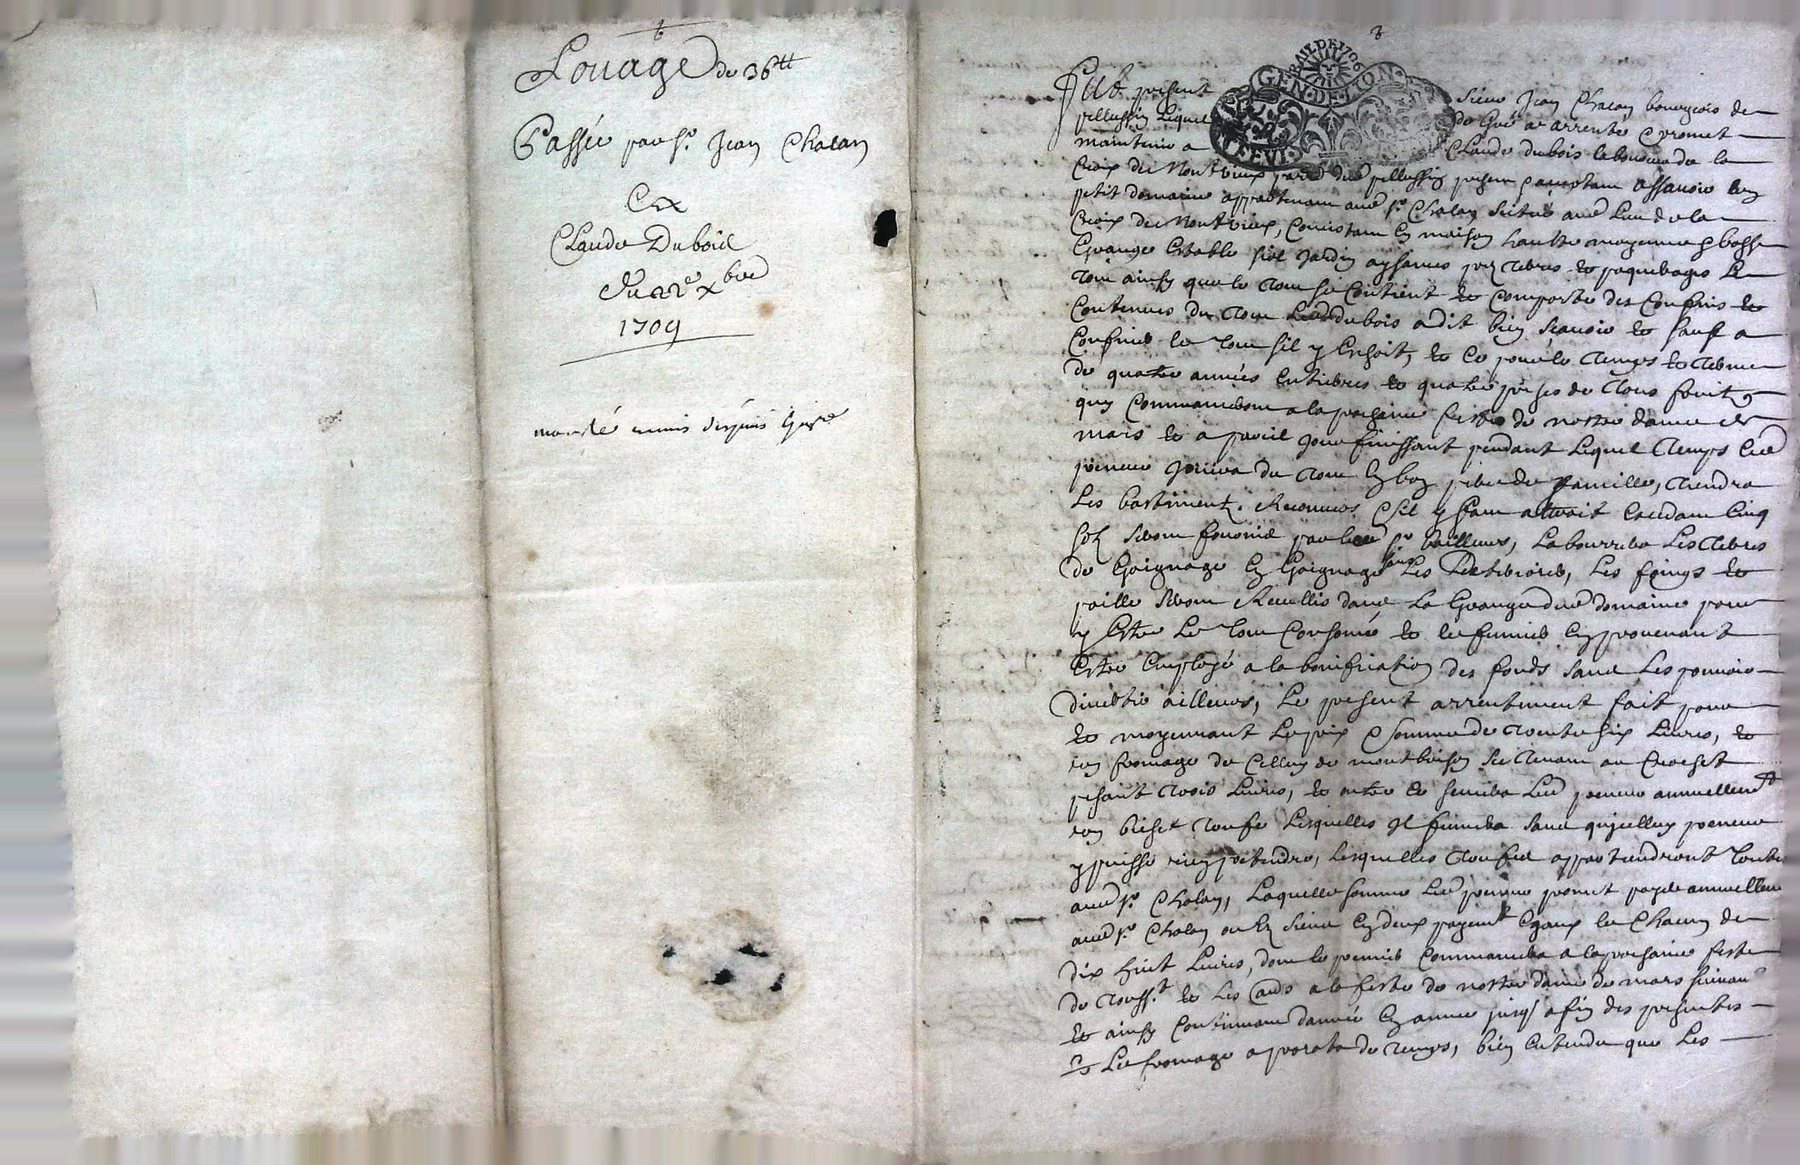 Louage de 36tt
Passée par Sr. Jean Chalan
Et
Claude Dubois
Du 22e xbre
1709
8
BAIL DE 1706
GEN DE LYON
Fut présent sieur Jean Chalan bourgeois de
pellussin lequel de gré a arrenté & promet
maintenir a Claude dubois laboureur de la
Croix de Montvieux parr. dud pellussin présent & acceptant assavoir un
petit domaine appartenant aud sr. Chalan situé aud lieu de la
Croix de Montvieux, Consistant en maison haulte moyenne & basse
Grange Estable jardin aysances prez terres et paquerages le
tout ainsy que le tout se Contient et Comporte des Confins et
Contenues du tout Led dubois a dit bien scavoir et sauf a
Confiner le tout sil y Escheoit, et Ce pour le temps et terme
de quatre années Entieres et quatre prises de tous fruits
quy Commanceront a la prochaine feste de nostre dame de
mars et a pareil jour finissant pendant lequel temps led
preneur jouira du tout En bon pere de famille, tiendra
Les bastiments Reconnus & sil y faut
seront fournie par led sr bailleur, Labourera Les terres
de Gaignage En Gaignage sans Les Deteriorer, Les foings et
paille seront Recullis dans La Grange dud domaine pour
y Estre Le tout Consomé et le fumier En provenant
Estre Employé a la bonification des fonds sans Les pouvoir
divertir ailleurs, Le present arrentement fait pour
et moyennant Le prix & somme de trente six Livres, et
un fromage de Celluy de montbrison
pesant trois Livres, et outre Ce semera Led preneur annuellemt
un bichet Lesquelles Il fumera sans qu'icelluy preneur
y puisse rien pretendre, lesquelles appartiendront toute
aud sr. Chalan, Laquelle somme Led preneur promet payer annuellemt
aud sr. Chalan ou Es siens En deux payemts Egaux de Chacun de
dix huit Livres, dont le premier Commancera a la prochaine feste
de Touss.t et Les autres a la feste de nostre dame de mars suivant
et ainsy Continuant d'année En année jusq' a fin des presentes
Led fromage a prorata du temps, bien Entendu que Les